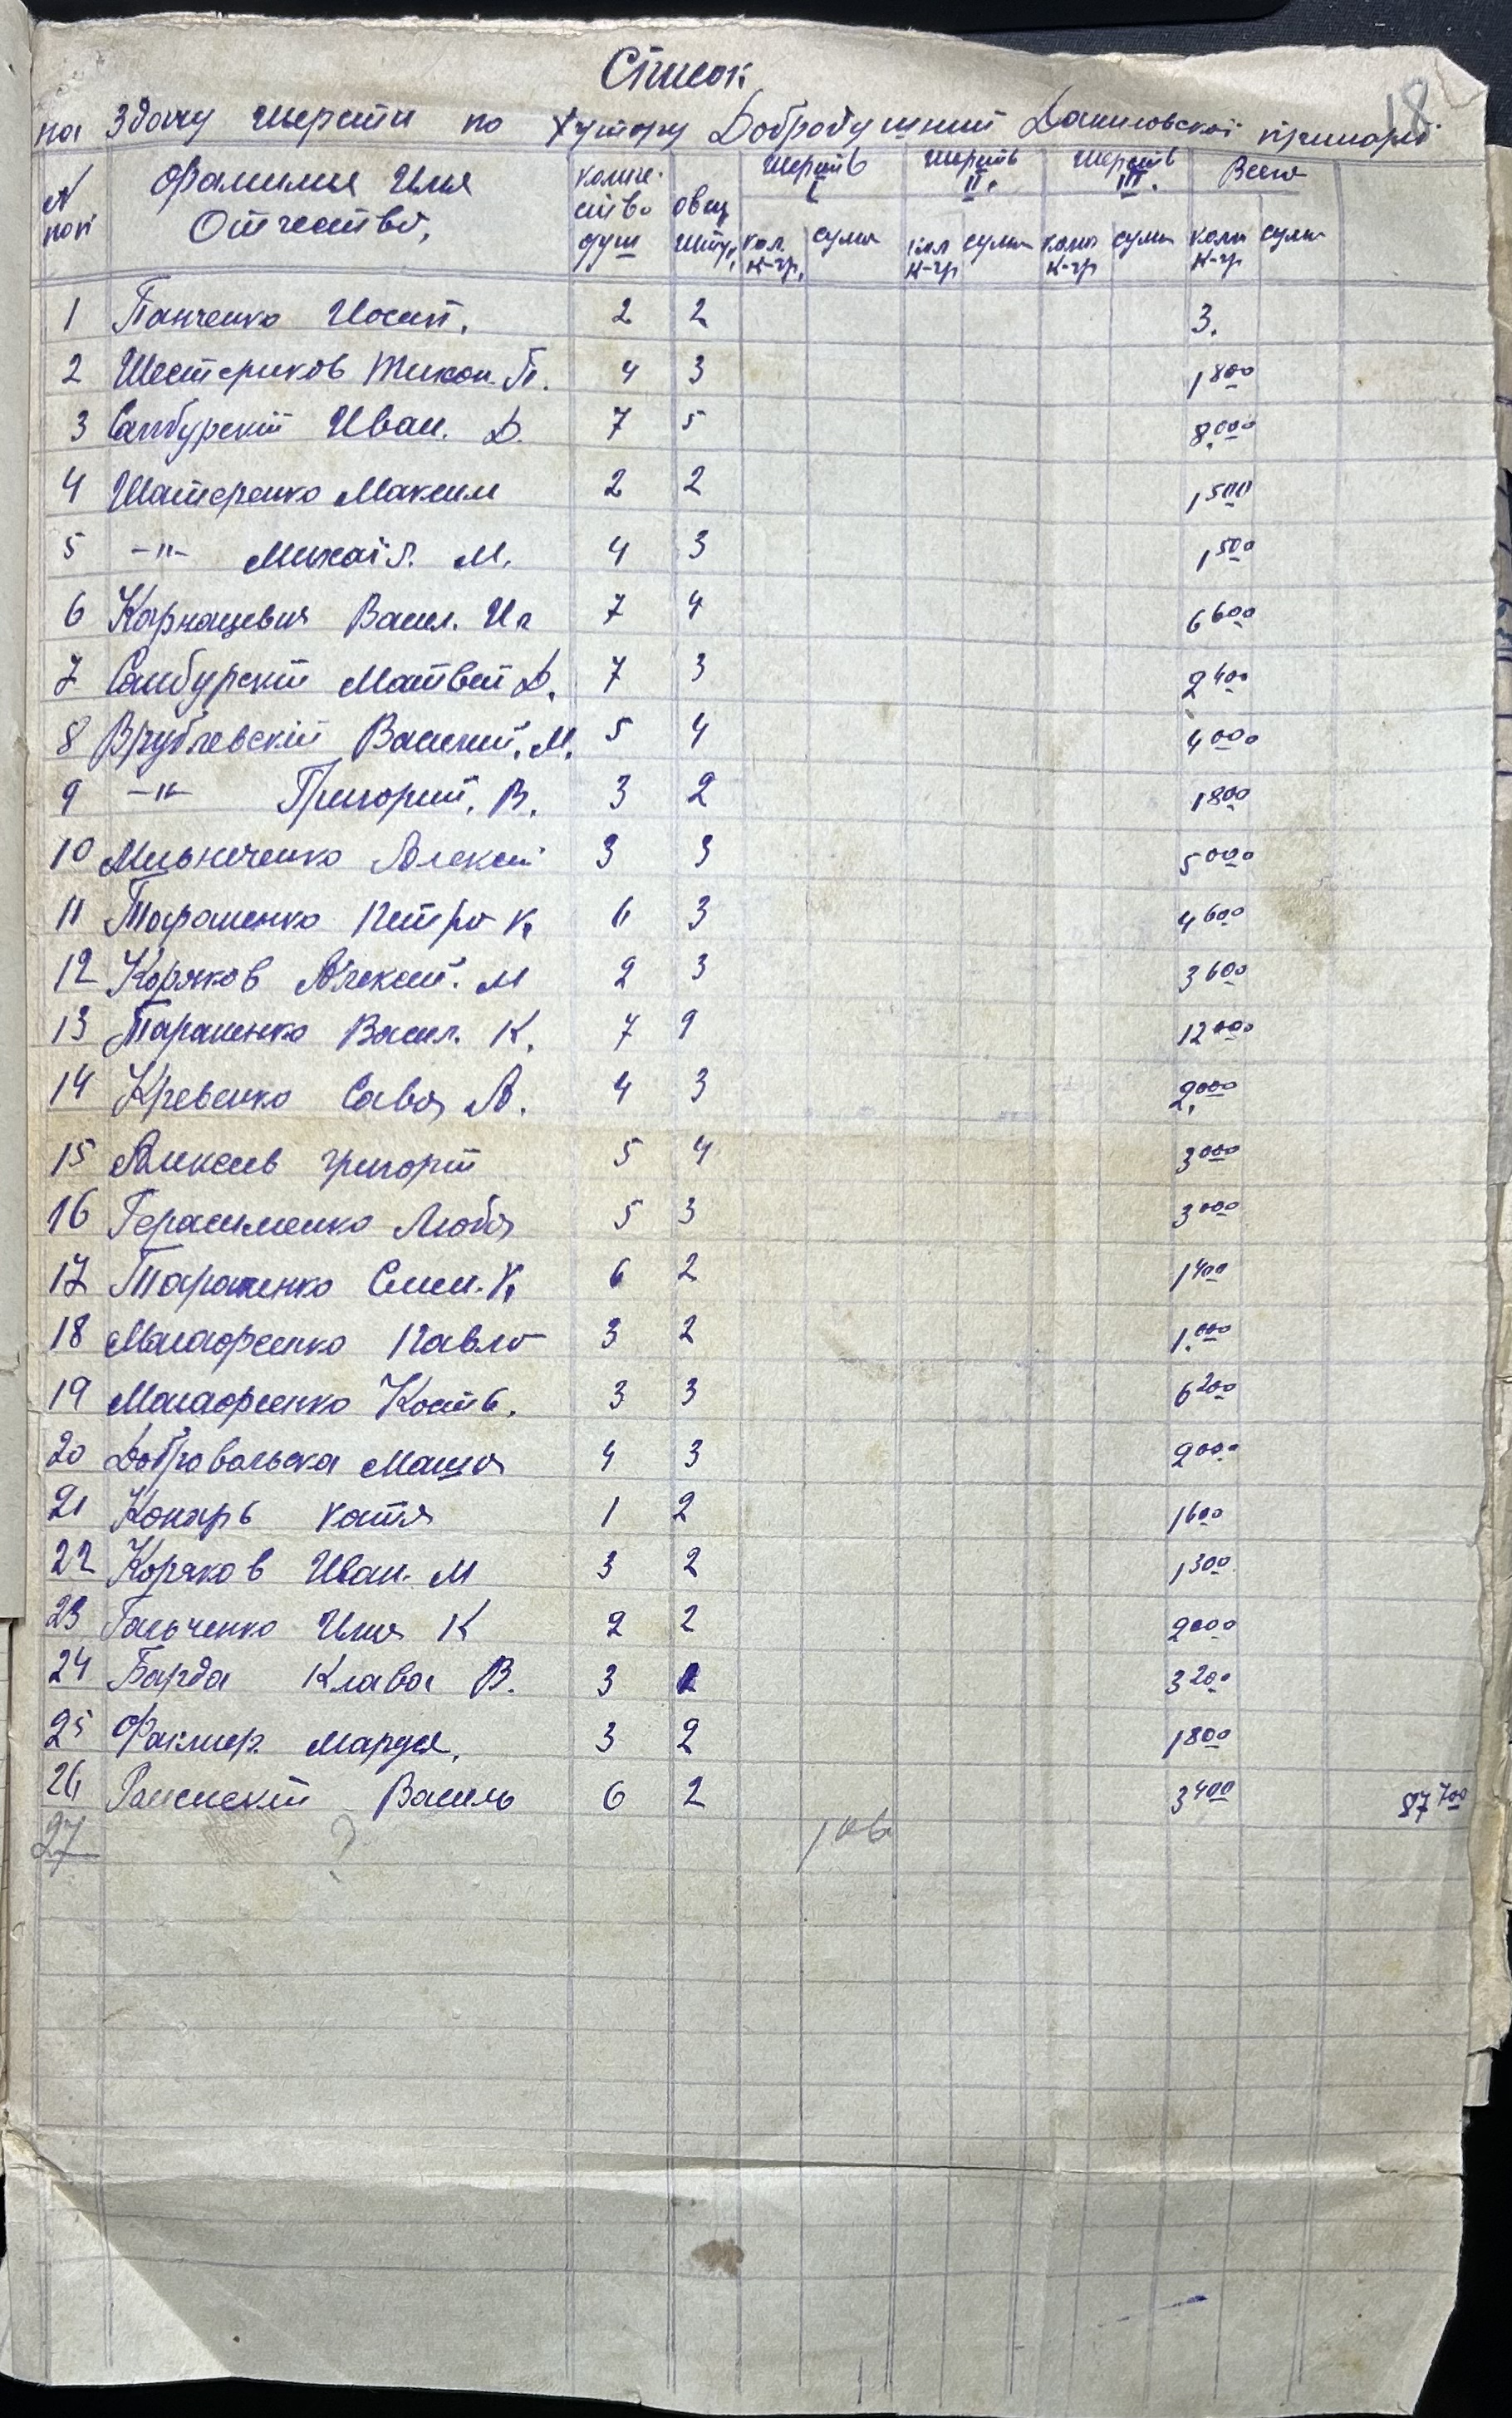 Список
18
на Здачу шерсти по хутору Добродушний Даниловской примарії
N поп Фамилия Имя Отчество, количество душ овец штук, Шерсть I Шерсть II. Шерсть III. Всего
кол. к-гр, сума кол к-гр сума колич к-гр сума колич к-гр сума
1 Панченко Иосип. 2 2 3.
2 Шестериков Тихон. П. 4 3 1800
3 Самбурскій Иван. Д. 7 5 8.000
4 Шатеренко Максим 2 2 1500
5 -"- Михаіл. М. 4 3 1500
6 Карнацевич Васил. Ил 7 4 6600
7 Самбурскій Матвей Д. 7 3 2400
8 Врублевскій Василий. М. 5 4 4000
9 -"- Григорий. В. 3 2 1800
10 Мельниченко Алексей 3 3 5000
11 Тараненко Петро К. 6 3 4600
12 Коряков Алексей. М 2 3 3600
13 Тараненко Васил. К. 7 9 12000
14 Кревенко Сава А. 4 3 2.000
15 Алексеев григорій 5 4 3000
16 Герасименко Люба 5 3 3000
17 Тараненко Семен. К. 6 2 1400
18 Павло 3 2 1.000
19 Кость. 3 3 6200
20 Добровольска Маша 4 3 2000
21 Конарь Катя 1 2 1600
22 Коряков Иван. М 3 2 1300
23 Гальченко Илия К 2 2 2000
24 Барда Клава В. 3 2 3200
25 Маруся. 3 2 1800
26 Василь 6 2 3400 87700
27 ?